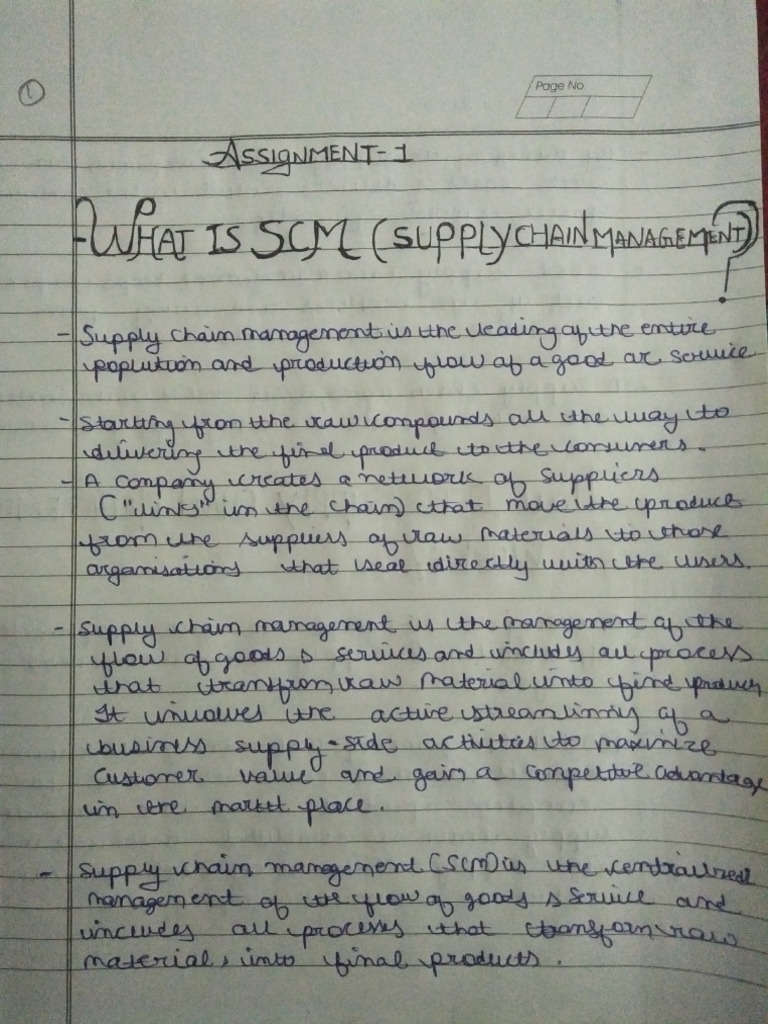 1
Page No
ASSIGNMENT-1
-WHAT IS SCM (SUPPLY CHAIN MANAGEMENT)?
- Supply chain management is the leading of the entire
poplution and production flow of a good or service
- Starting from the raw compounds all the way to
delivering the final product to the consumers.
- A company creates a network of suppliers
("links" in the chain) that move the product
from the suppliers of raw materials to those
organisations that deal directly with the users.
- Supply chain management is the management of the
flow of goods & services and includes all process
that transfrom raw material into final product,
It involves the active streamlining of a
business supply-side activities to maximize
customer value and gain a competitive advantage
in the market place.
- Supply chain management (SCM) is the centralized
management of the flow of goods & service and
includes all processes that transform raw
material, into final products.